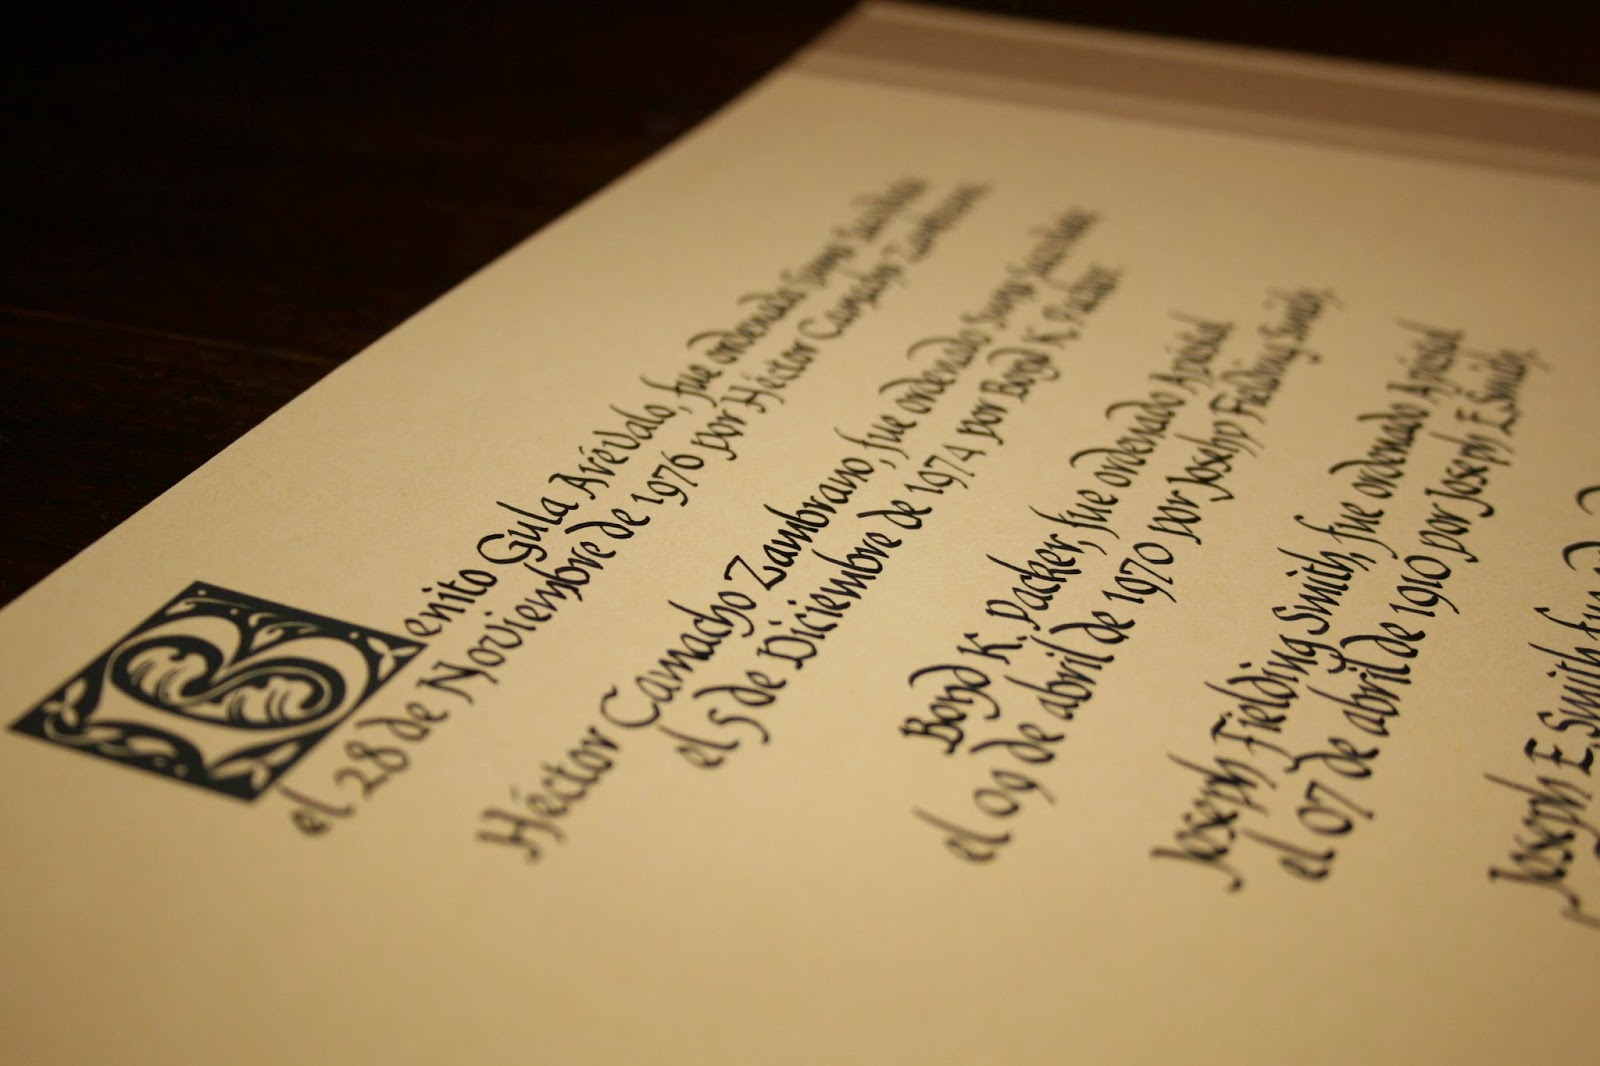 Benito Gula Arévalo, fue ordenado Sumo Sacerdote
el 28 de Noviembre de 1976 por Héctor Camacho Zambrano.
Héctor Camacho Zambrano, fue ordenado Sumo Sacerdote
el 5 de Diciembre de 1974 por Boyd K. Packer.
Boyd K. Packer, fue ordenado Apóstol
el 09 de abril de 1970 por Joseph Fielding Smith,
Joseph Fielding Smith, fue ordenado Apóstol
el 07 de abril de 1910 por Joseph F. Smith,
Joseph F. Smith fue